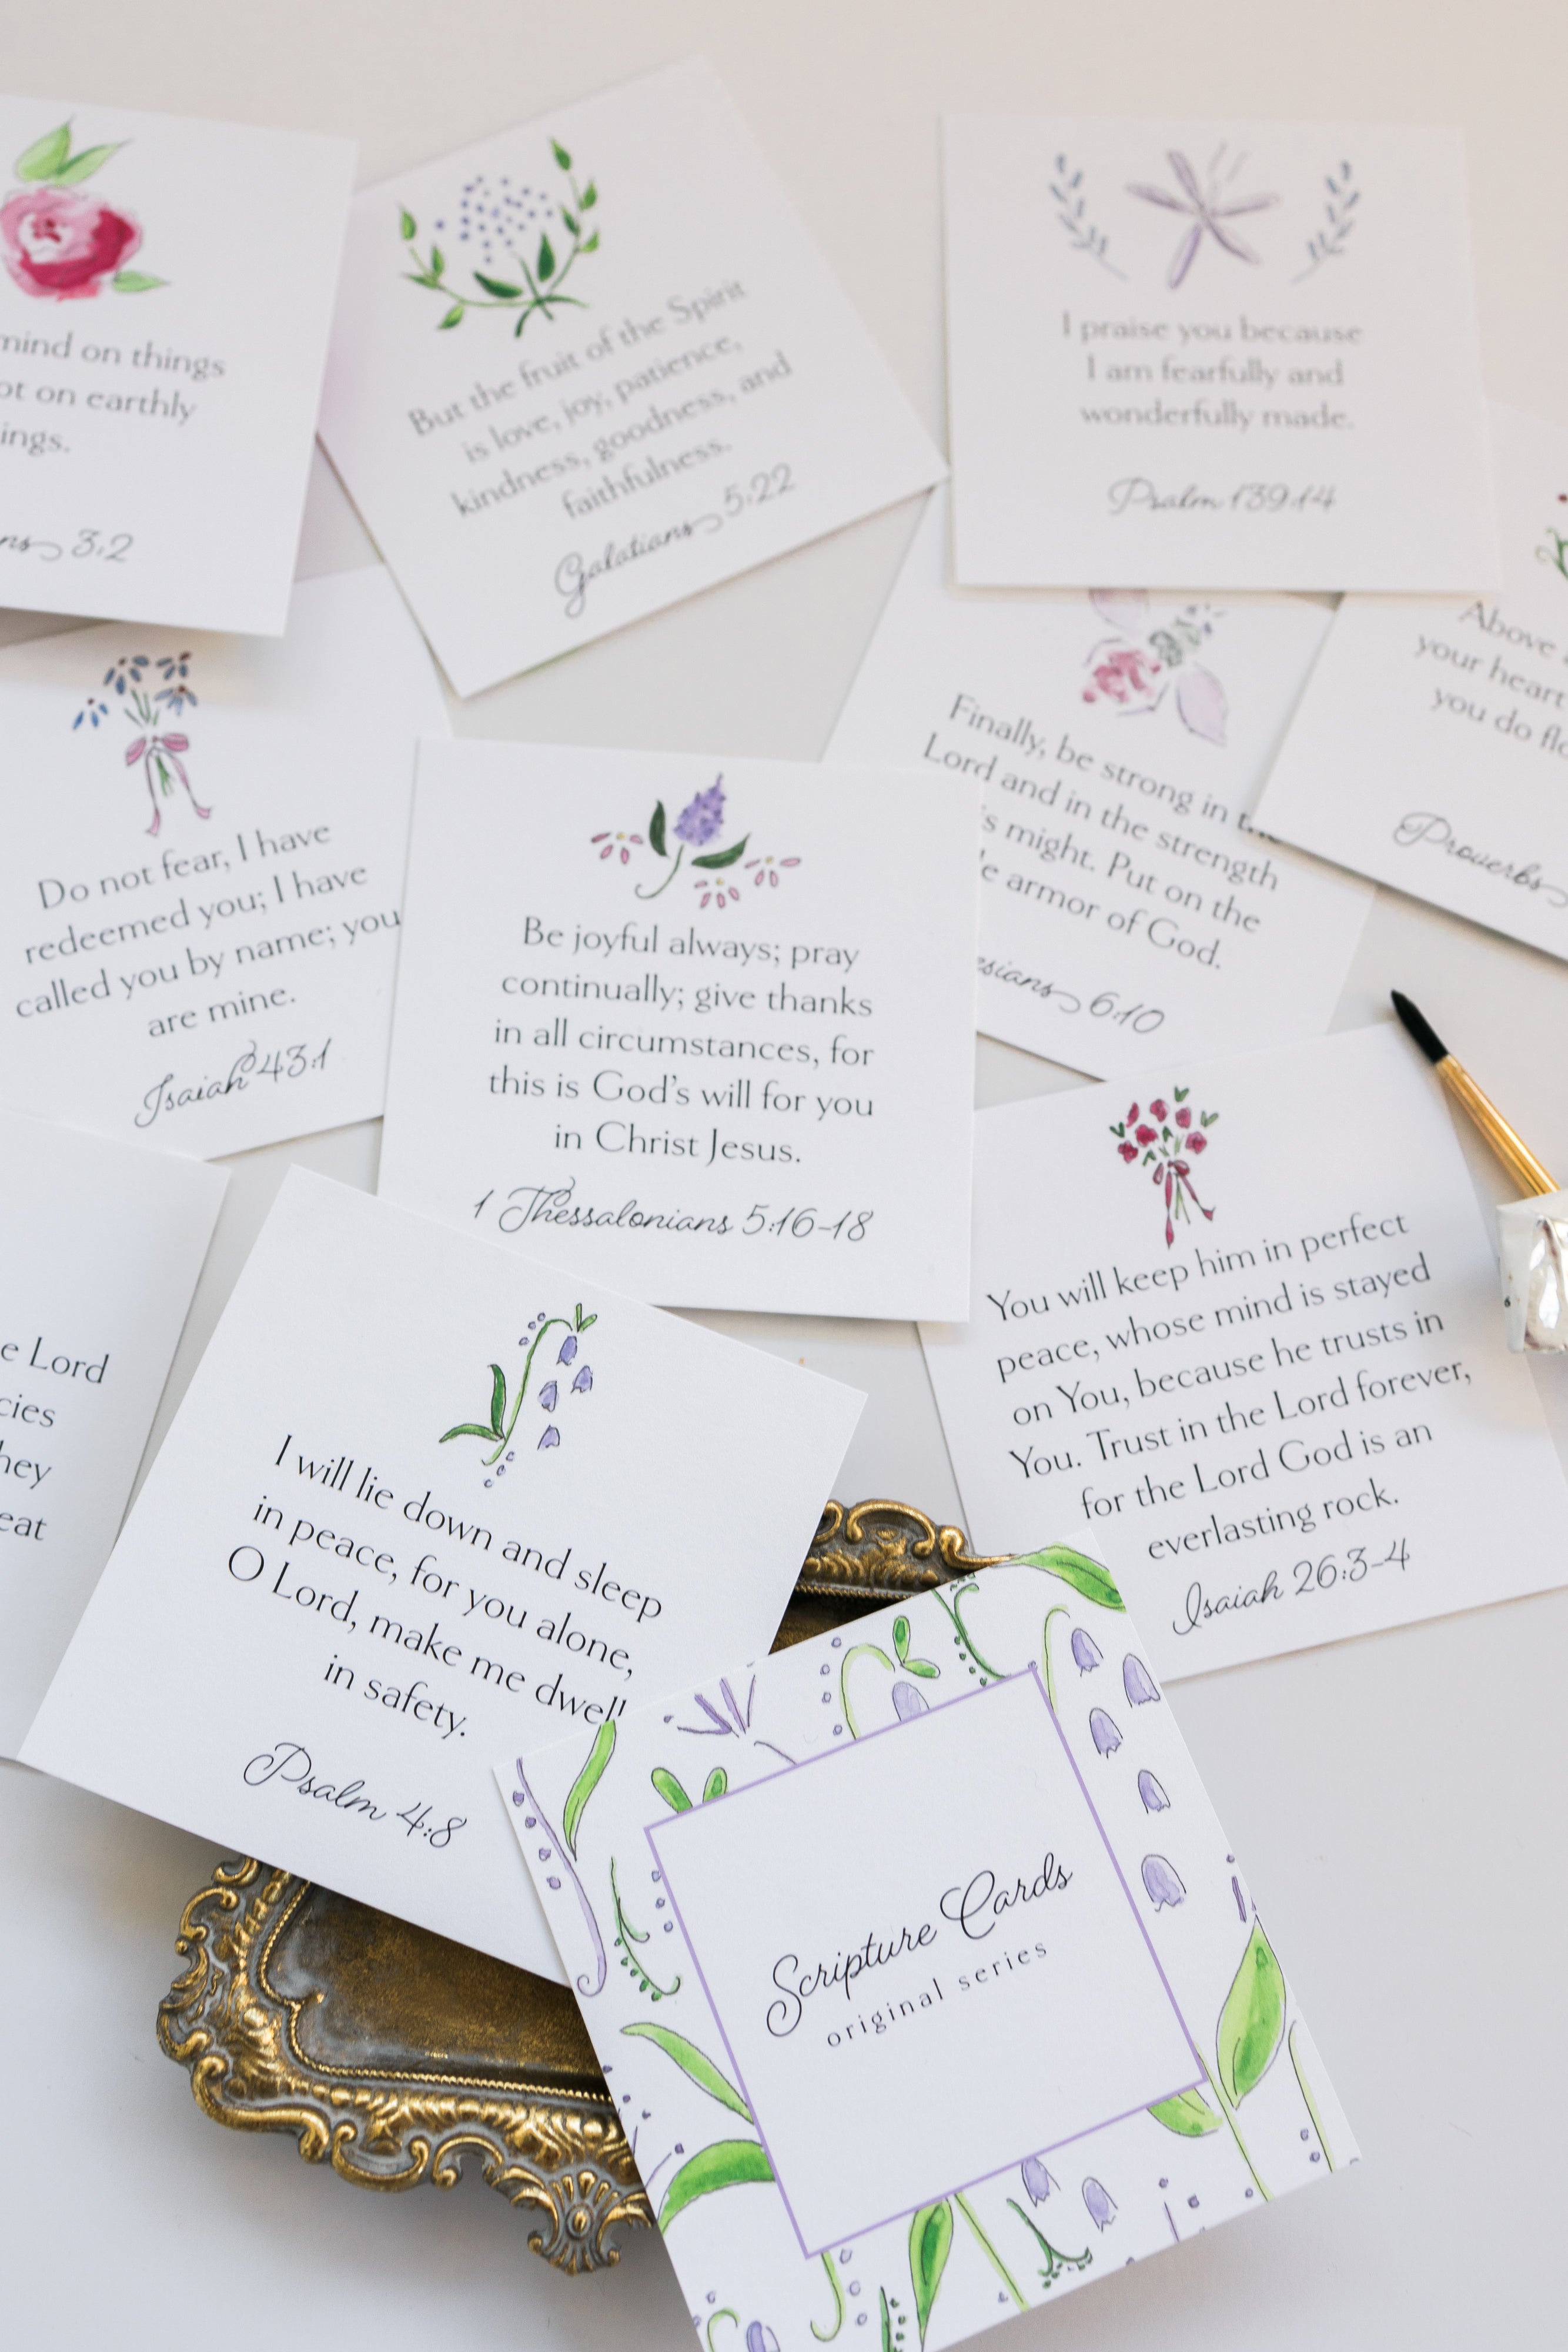 mind on things
ot on earthly
ings.
ns 3:2
But the fruit of the Spirit
is love, joy, patience,
kindness, goodness, and
faithfulness.
Galatians 5:22
I praise you because
I am fearfully and
wonderfully made.
Psalm 139:14
Above
your heart
you do flo
Proverbs
Do not fear, I have
redeemed you; I have
called you by name; you
are mine.
Isaiah 43:1
Be joyful always; pray
continually; give thanks
in all circumstances, for
this is God's will for you
in Christ Jesus.
1 Thessalonians 5:16-18
Finally, be strong in
Lord and in the strength
s might. Put on the
e armor of God.
esians 6:10
e Lord
cies
hey
eat
I will lie down and sleep
in peace, for you alone,
O Lord, make me dwell
in safety.
Psalm 4:8
You will keep him in perfect
peace, whose mind is stayed
on You, because he trusts in
You. Trust in the Lord forever,
for the Lord God is an
everlasting rock.
Isaiah 26:3-4
Scripture Cards
original series